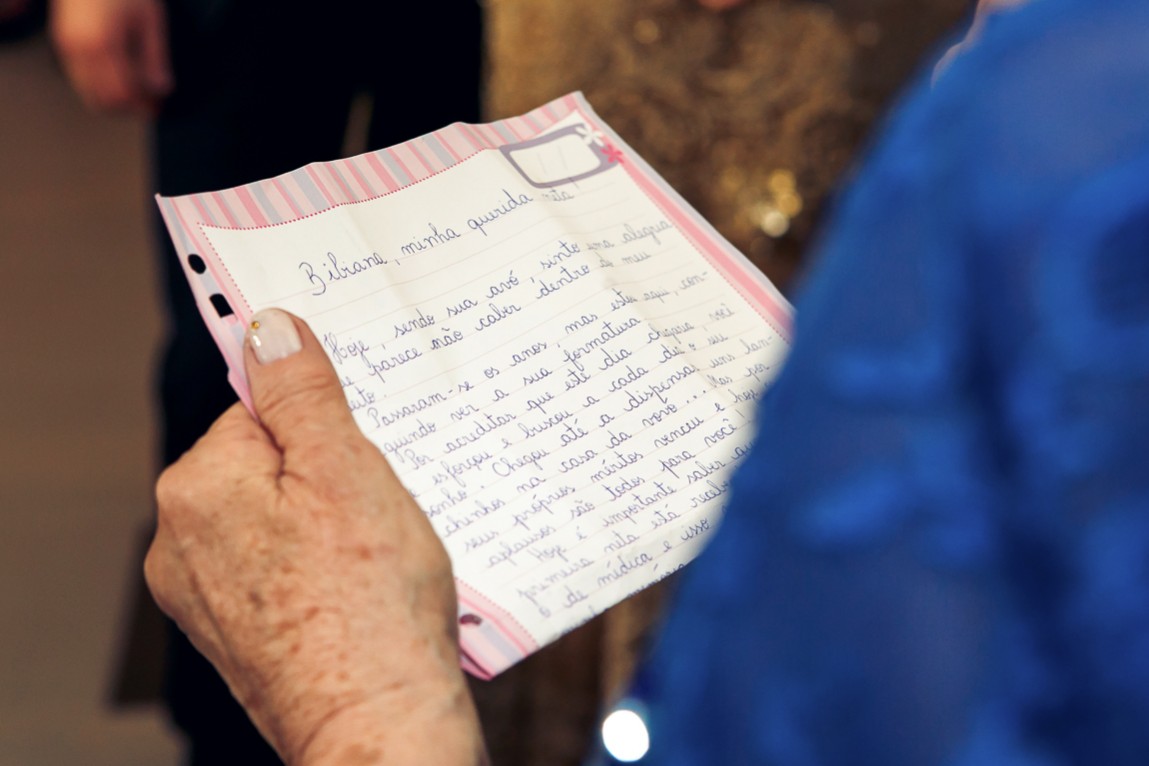 Bibiana, minha querida neta
Hoje, sendo sua avó, sinto uma alegria
parece não caber dentro do meu
eito.
Passaram-se os anos, mas estou aqui, con-
guindo ver a sua formatura
Por acreditar que este dia chegaria, você
esforçou e buscou a cada dia o seu
sonho. Chegou até a dispensar uns lan-
chinhos na casa da vovo... Mas por
seus próprios méritos venceu e hoje
aplausos são todos para você!
Hoje é importante saber
primeira neta está
de médica e isso